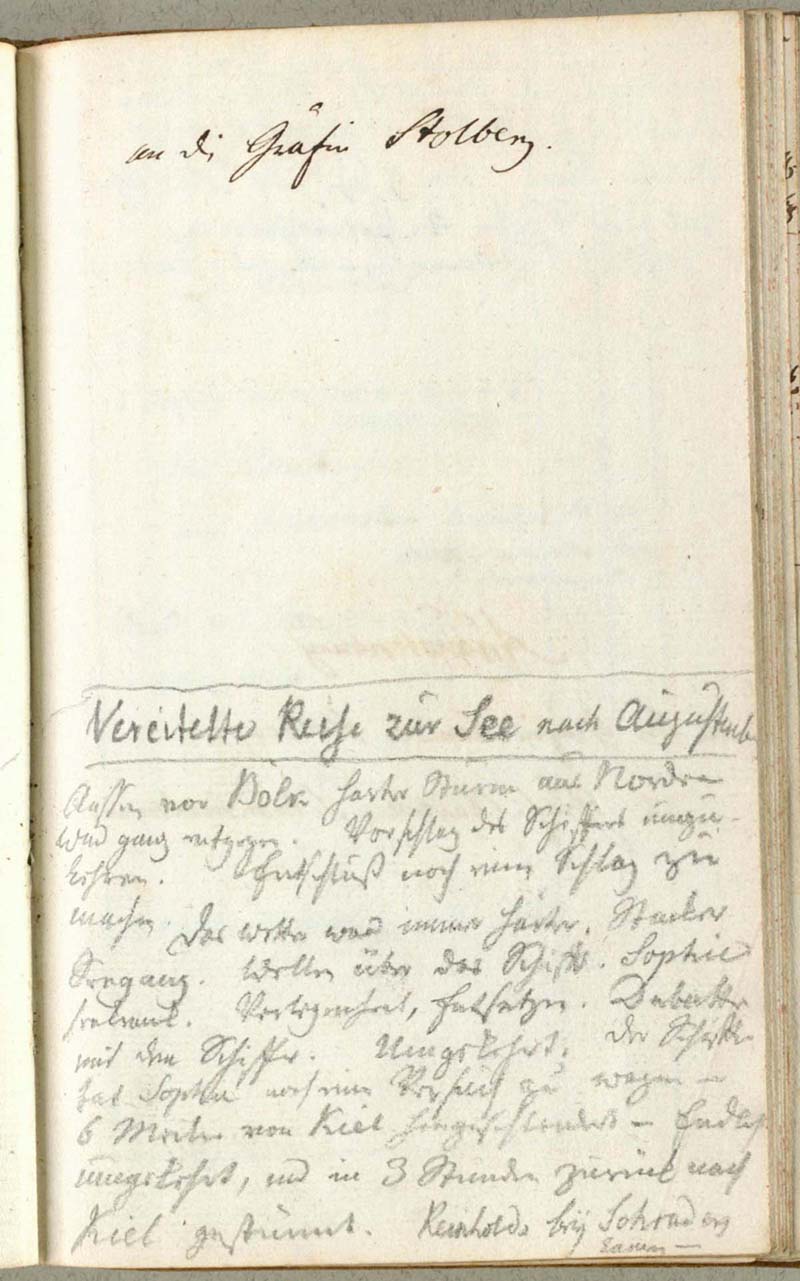 an die Gräfin Stolberg.
Vereitelte Reise zur See nach Augustenb
Aussen vor Bölk harter Sturm aus Norden
Wind ganz entgegen. Vorschlag des Schiffers umzu-
kehren. Entschluß noch einen Schlag zu
machen. Das Wetter ward immer härter. Starker
Seegang. Wellen über das Schiff. Sophie
seekrank. Verlegenheit, Entsetzen. Debatte
mit dem Schiffer. Umgekehrt. Der Schiffer
bat Sophie noch einen Versuch zu wagen –
6 Meilen von Kiel – Endlich
umgekehrt, und in 3 Stunden zurück nach
Kiel gestürmt. Reinholds bey Schraders